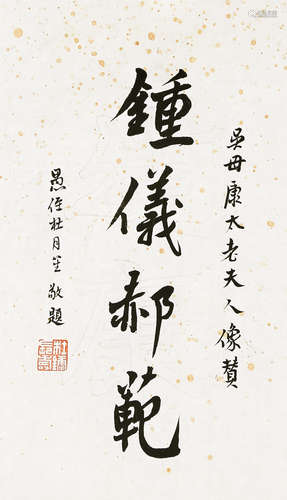 吳母康太老夫人像贊
鍾儀郝範
愚侄杜月笙敬題